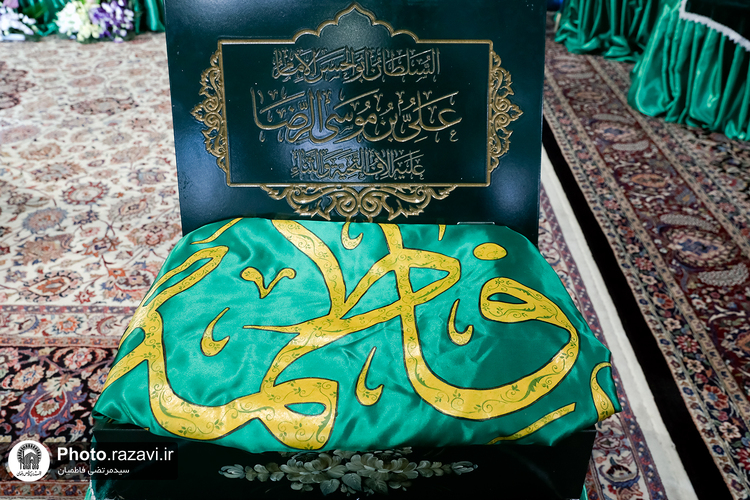 السلطان أبو الحسن الإمام
علي بن موسى الرضا
عليه آلاف التحية والثناء
فاطمة
Photo.razavi.ir
سیدمرتضی فاطمیان